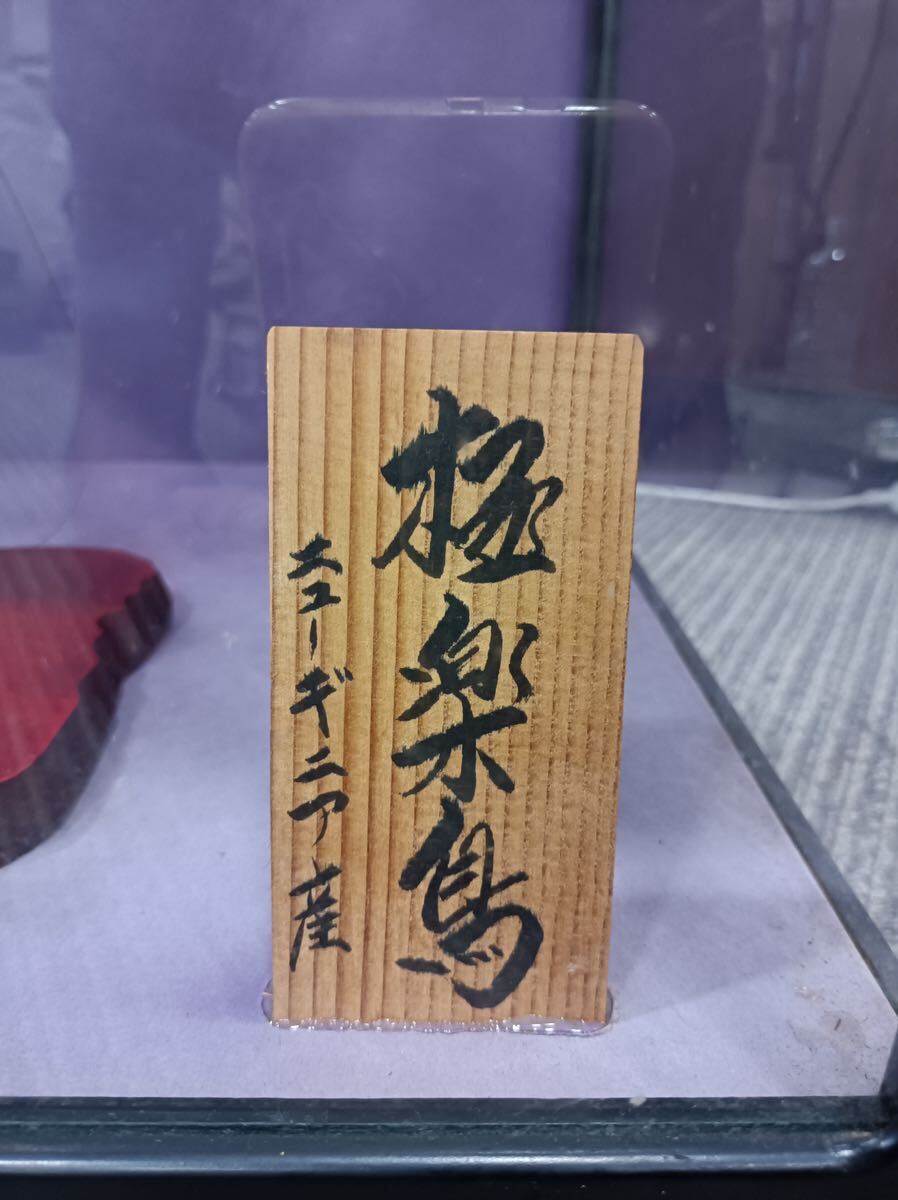 極楽鳥
ニューギニア産